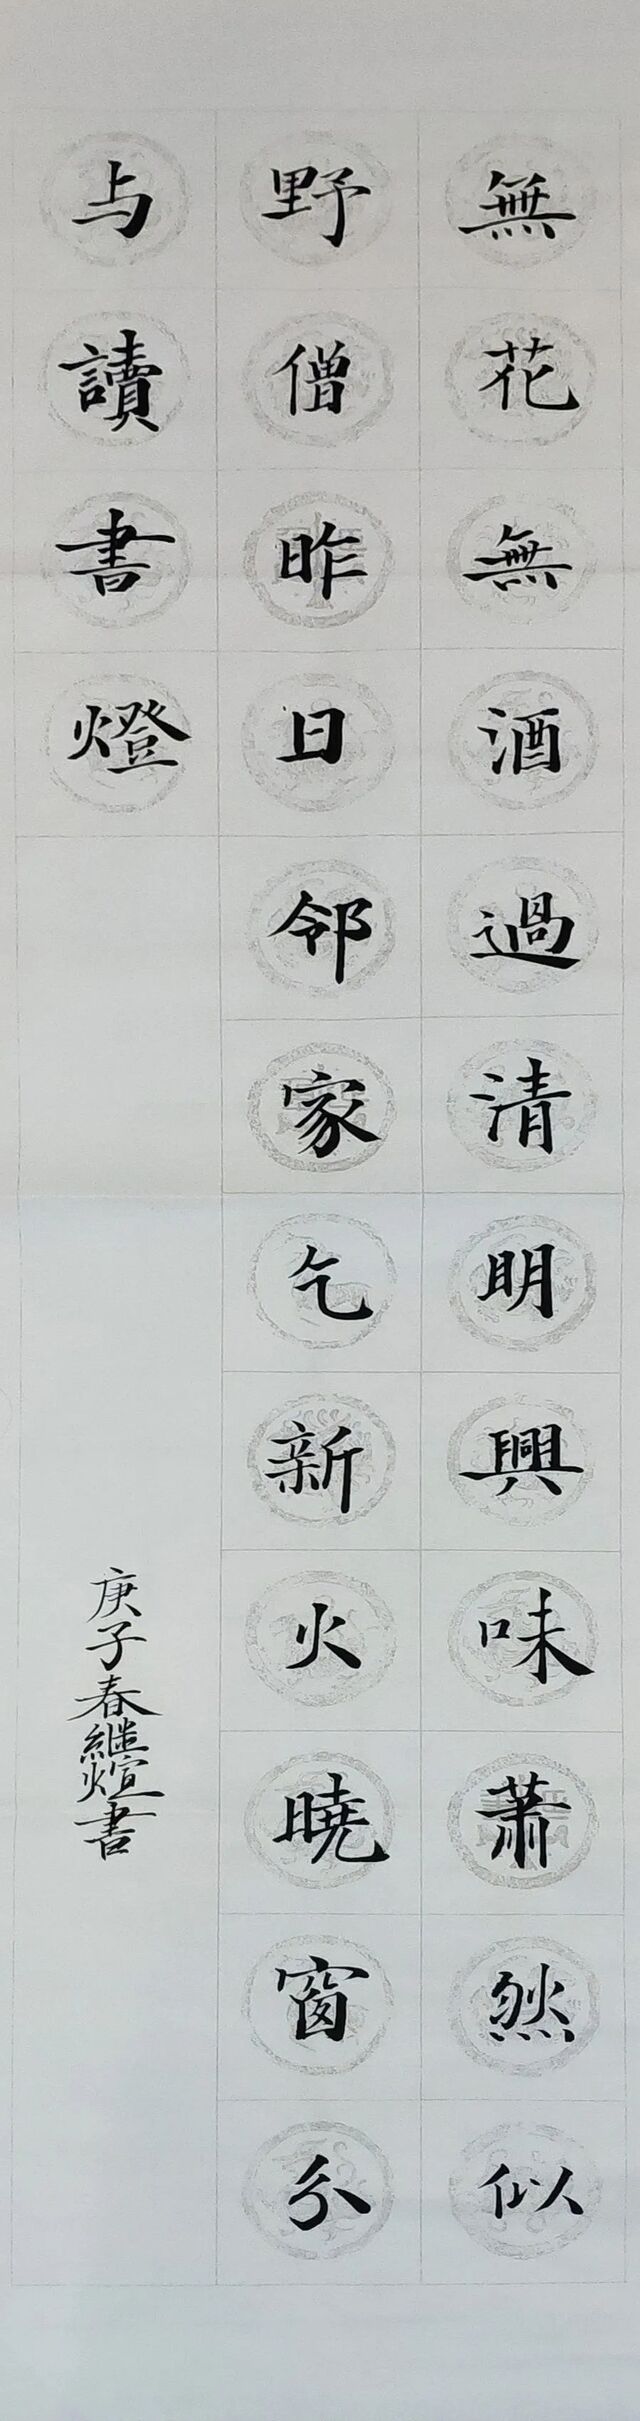 無花無酒過清明興味蕭然似
野僧昨日邻家乞新火曉窗分
与讀書燈
庚子春繼煊書